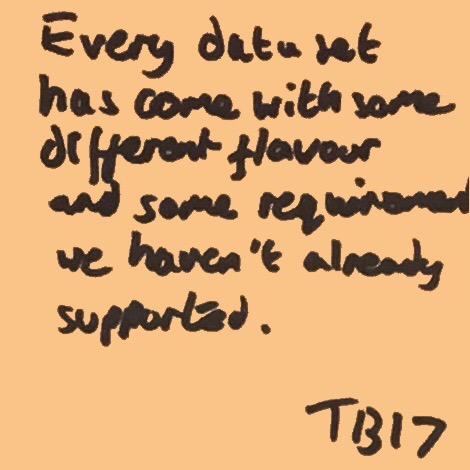 Every data set
has come with some
different flavour
and some requirement
we haven't already
supported.
TB17